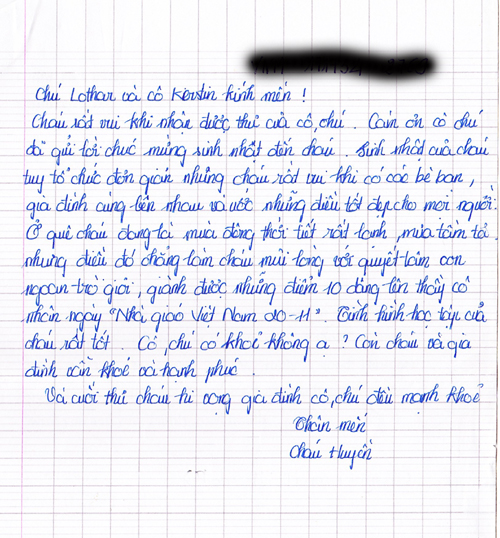 Chú Lothar và cô Kerstin kính mến !
Cháu rất vui khi nhận được thư của cô, chú . Cảm ơn cô chú
đã gửi lời chúc mừng sinh nhật đến cháu . Sinh nhật của cháu
tuy tổ chức đơn giản nhưng cháu rất vui khi có các bè bạn,
gia đình cùng bên nhau và ước những điều tốt đẹp cho mọi người.
Ở quê cháu đang là mùa đông thời tiết rất lạnh, mưa tầm tả .
nhưng điều đó chẳng làm cháu mũi lòng với quyết tâm con
ngoan trò giỏi, giành được những điểm 10 dâng lên thầy cô
nhân ngày "Nhà giáo Việt Nam 20-11". Tình hình học tập của
cháu rất tốt . Cô, chú có khoẻ không ạ ? Còn cháu và gia
đình vẫn khoẻ và hạnh phúc .
Và cuối thư cháu hi vọng gia đình cô, chú đều mạnh khoẻ
Thân mến
Cháu Huyền